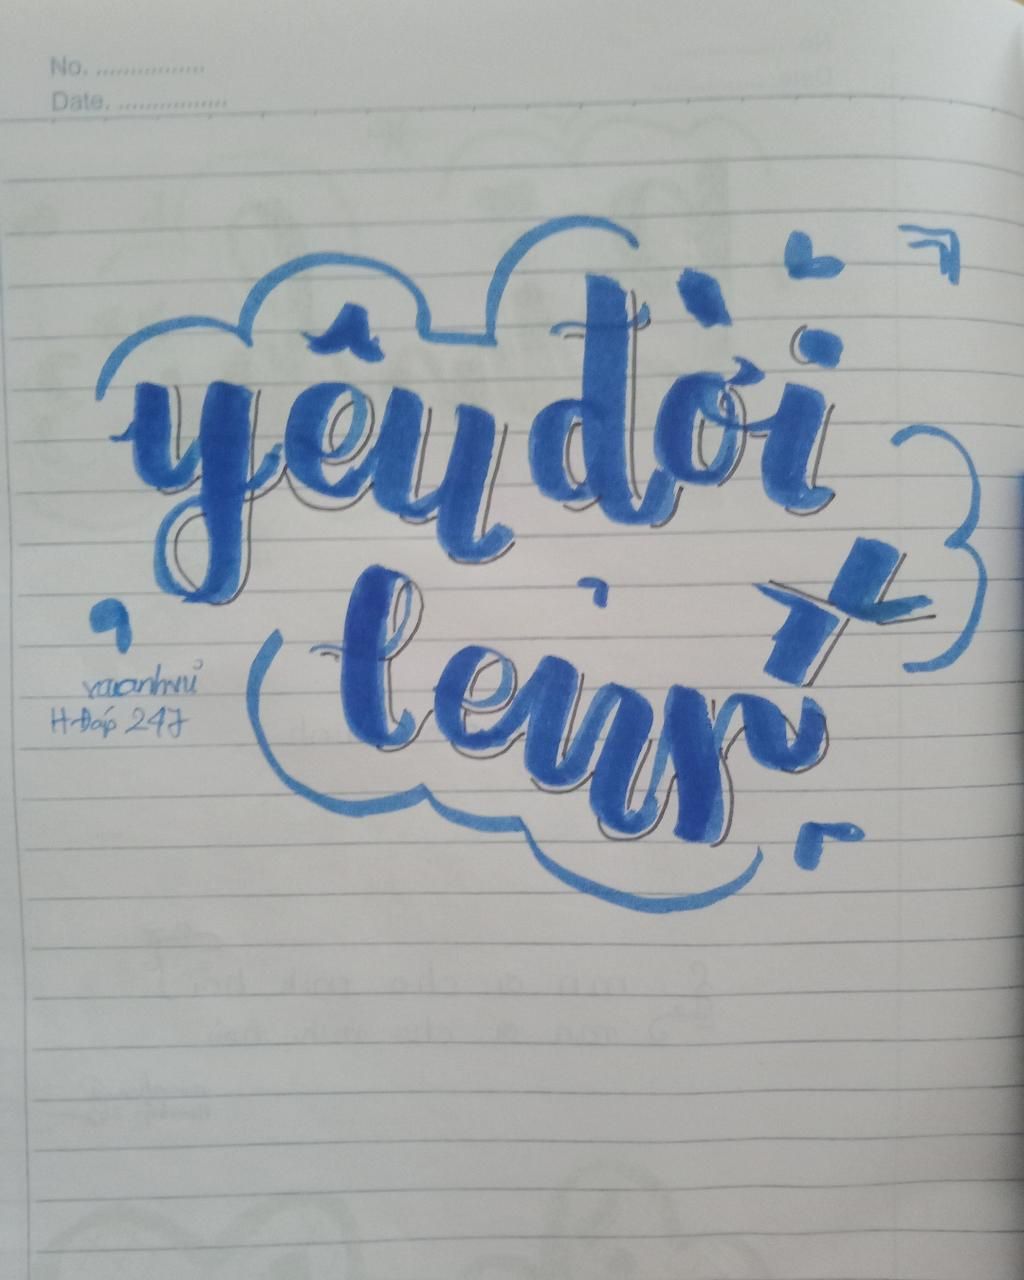 No. ................
Date. ................
yêu đời
lên
H-Đáp 247